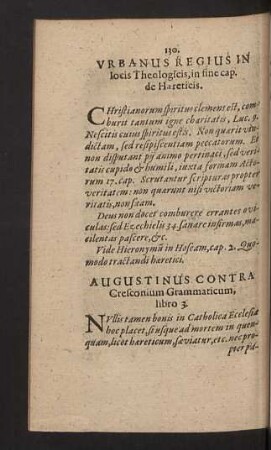 130.
VRBANUS REGIUS IN
locis Theologicis, in fine cap.
de Hæreticis.
CHristianorum spiritus clemens est, com-
burit tantum igne charitatis, Luc. 9.
Nescitis cuius spiritus estis. Non quærit vin-
dictam, sed resipiscentiam peccatorum. Et
non disputant pij animo pertinaci, sed veri-
tatis cupido & humili, iuxta formam Acto-
rum 17. cap. Scrutantur scripturas propter
veritatem: non quærunt nisi victoriam ve-
ritatis, non suam.
Deus non docet comburere errantes ovi-
culas: sed Ezechielis 34. sanare infirmas, ma-
cilentas pascere, &c.
Vide Hieronymũ in Hoseam, cap. 2. Quo-
modo tractandi hæretici.
AUGUSTINUS CONTRA
Cresconium Grammaticum,
libro 3.
NVllis tamen bonis in Catholica Ecclesia
hoc placet, si usque ad mortem in quen-
quam, licet hæreticum, sæviatur, etc. nec pro-
pter pa-